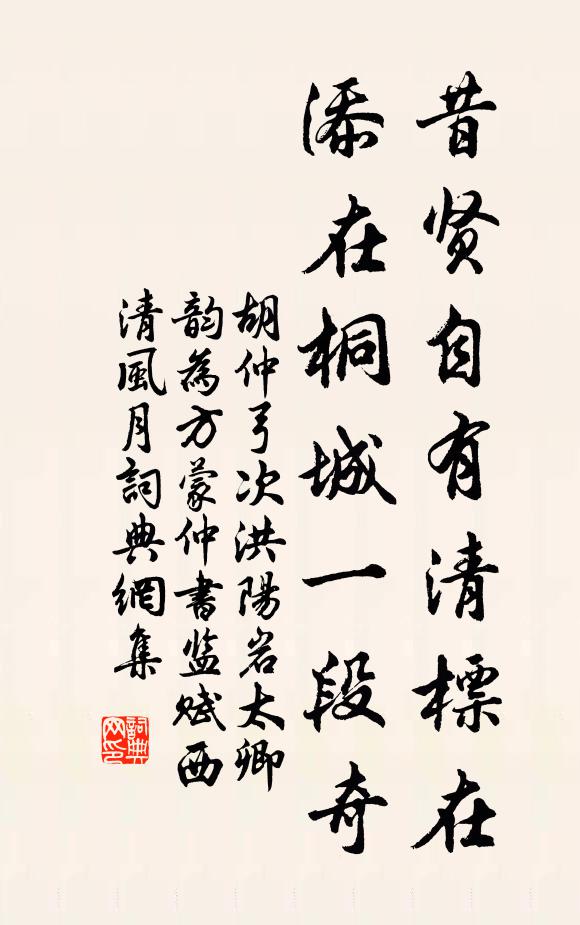 昔贤自有清標在
添在桐城一段奇
胡仲弓次洪陽岩太卿
韵為方蒙仲書监赋西
清風月詞典網集
詞典
网印